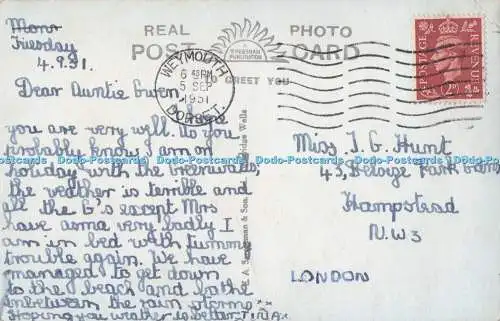 REAL PHOTO
POST CARD
A SWEETMAN PUBLICATION
GREET YOU
WEYMOUTH
6 45 PM
5 SEP
1951
DORSET.
POSTAGE REVENUE
Mon
Tuesday
4.9.51.
Dear Auntie Gwen,
I hope
you are very well. As you
probably know, I am on
holiday with the
the weather is terrible and
all the G's except Mrs
have asma very badly I
am in bed with tummy
trouble again. We have
managed to get down
to the beach and bathe
inbetween the rain storms
Hoping you weather is better. TINA.
Miss J. G. Hunt
45, Park Gdns
Hampstead
N.W3
LONDON
& Son, Tunbridge Wells
Dodo-Postcards Dodo-Postcards Dodo-Postcards Dodo-Postcards Dodo-Postcards